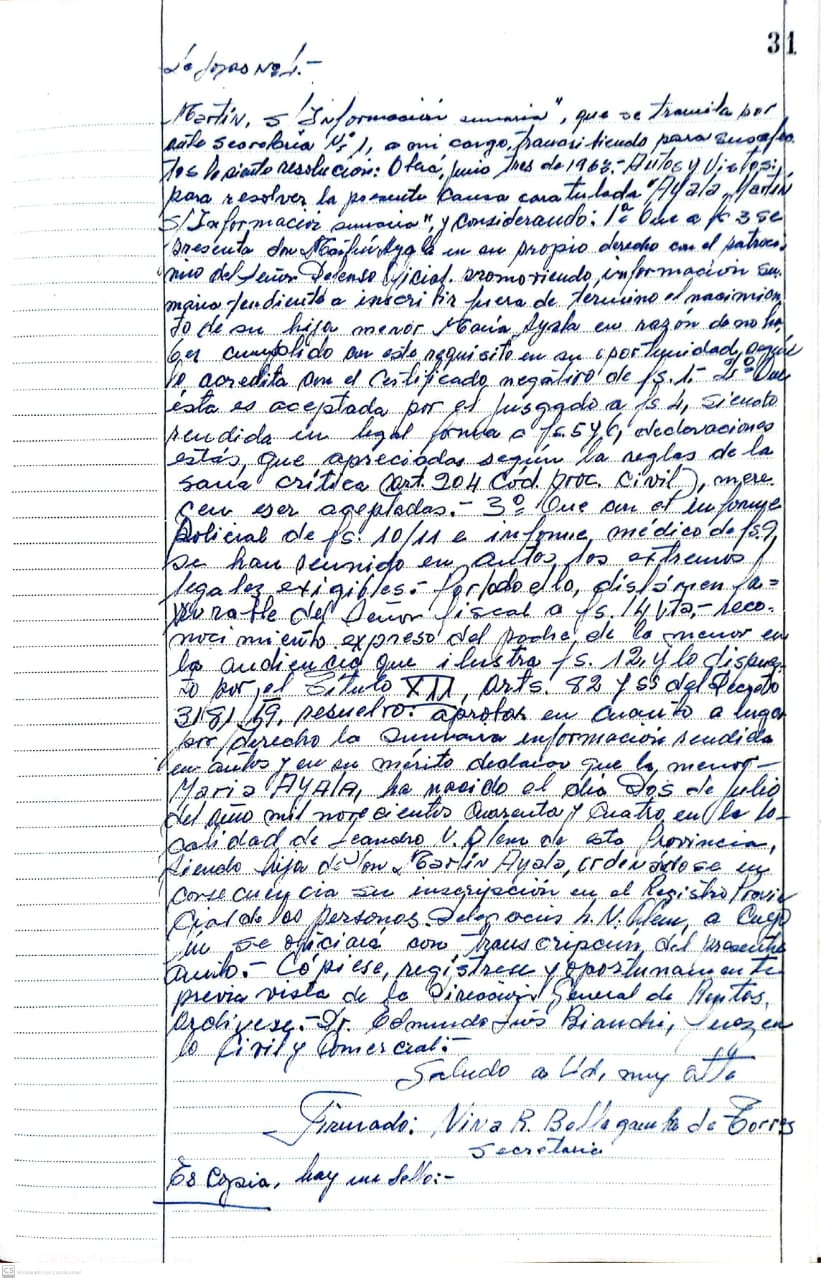 31
De fojas Nº 1.-
Martín, s/ "Información sumaria", que se tramita por
ante secretaría Nº 1, a mi cargo, transcribiendo para sus efec
tos la siguiente resolución: Oberá, junio tres de 1963.- Autos y Vistos:
para resolver la presente causa caratulada "Ayala Martín
S/ Información sumaria", y considerando: 1º Que a fs 3 se
presenta don Martín Ayala en su propio derecho con el patroci
nio del Señor Defensor Oficial promoviendo, información su
maria tendiente a inscribir fuera de termino el nacimien
to de su hija menor María Ayala en razón de no ha
ber cumplido con este requisito en su oportunidad, según
lo acredita con el Certificado negativo de fs. 1.- 2º Que
ésta es aceptada por el juzgado a fs 4, siendo
rendida en legal forma a fs. 5 y 6, declaraciones
estás, que apreciadas según la reglas de la
sana crítica (art. 204 Cód. proc. Civil), mere
cen ser aceptadas.- 3º Que con el informe
policial de fs. 10/11 e informe, médico de fs. 9,
se han reunido en autos, los extremos
legales exigibles.- Por todo ello, dictámen fa=
vorable del Señor fiscal a fs. 14 vta,- reco-
nocimiento expreso del padre de la menor en
la audiencia que ilustra fs. 12, y lo dispues-
to por el Título XII, arts. 82 y ss del Decreto
3181/59, resuelvo: aprobar en cuanto a lugar
por derecho la sumaria información rendida
en autos y en su mérito declarar que la, menor-
María AYALA, ha nacido el día Dos de julio
del año mil novecientos Cuarenta y Cuatro, en la lo-
calidad de Leandro N. Alem de esta Provincia,
siendo hija de Don Martín Ayala, ordenándose en
consecuencia su inscripción en el Registro Provin
cial de las personas. Delegación L. N. Alem, a Cuyo
fin se oficiará con transcripcion, del presente
Auto.- Cópiese, regístrese y oportunamente
previa vista de la Dirección General de Rentas,
archívese.- Dr. Edmundo Luis Bianchi, Juez en
lo Civil y Comercial.-
Saludo a Ud, muy atte
Firmado: Nina R. de Torres
Secretaria
Es Copia, hay un Sello:-
CS